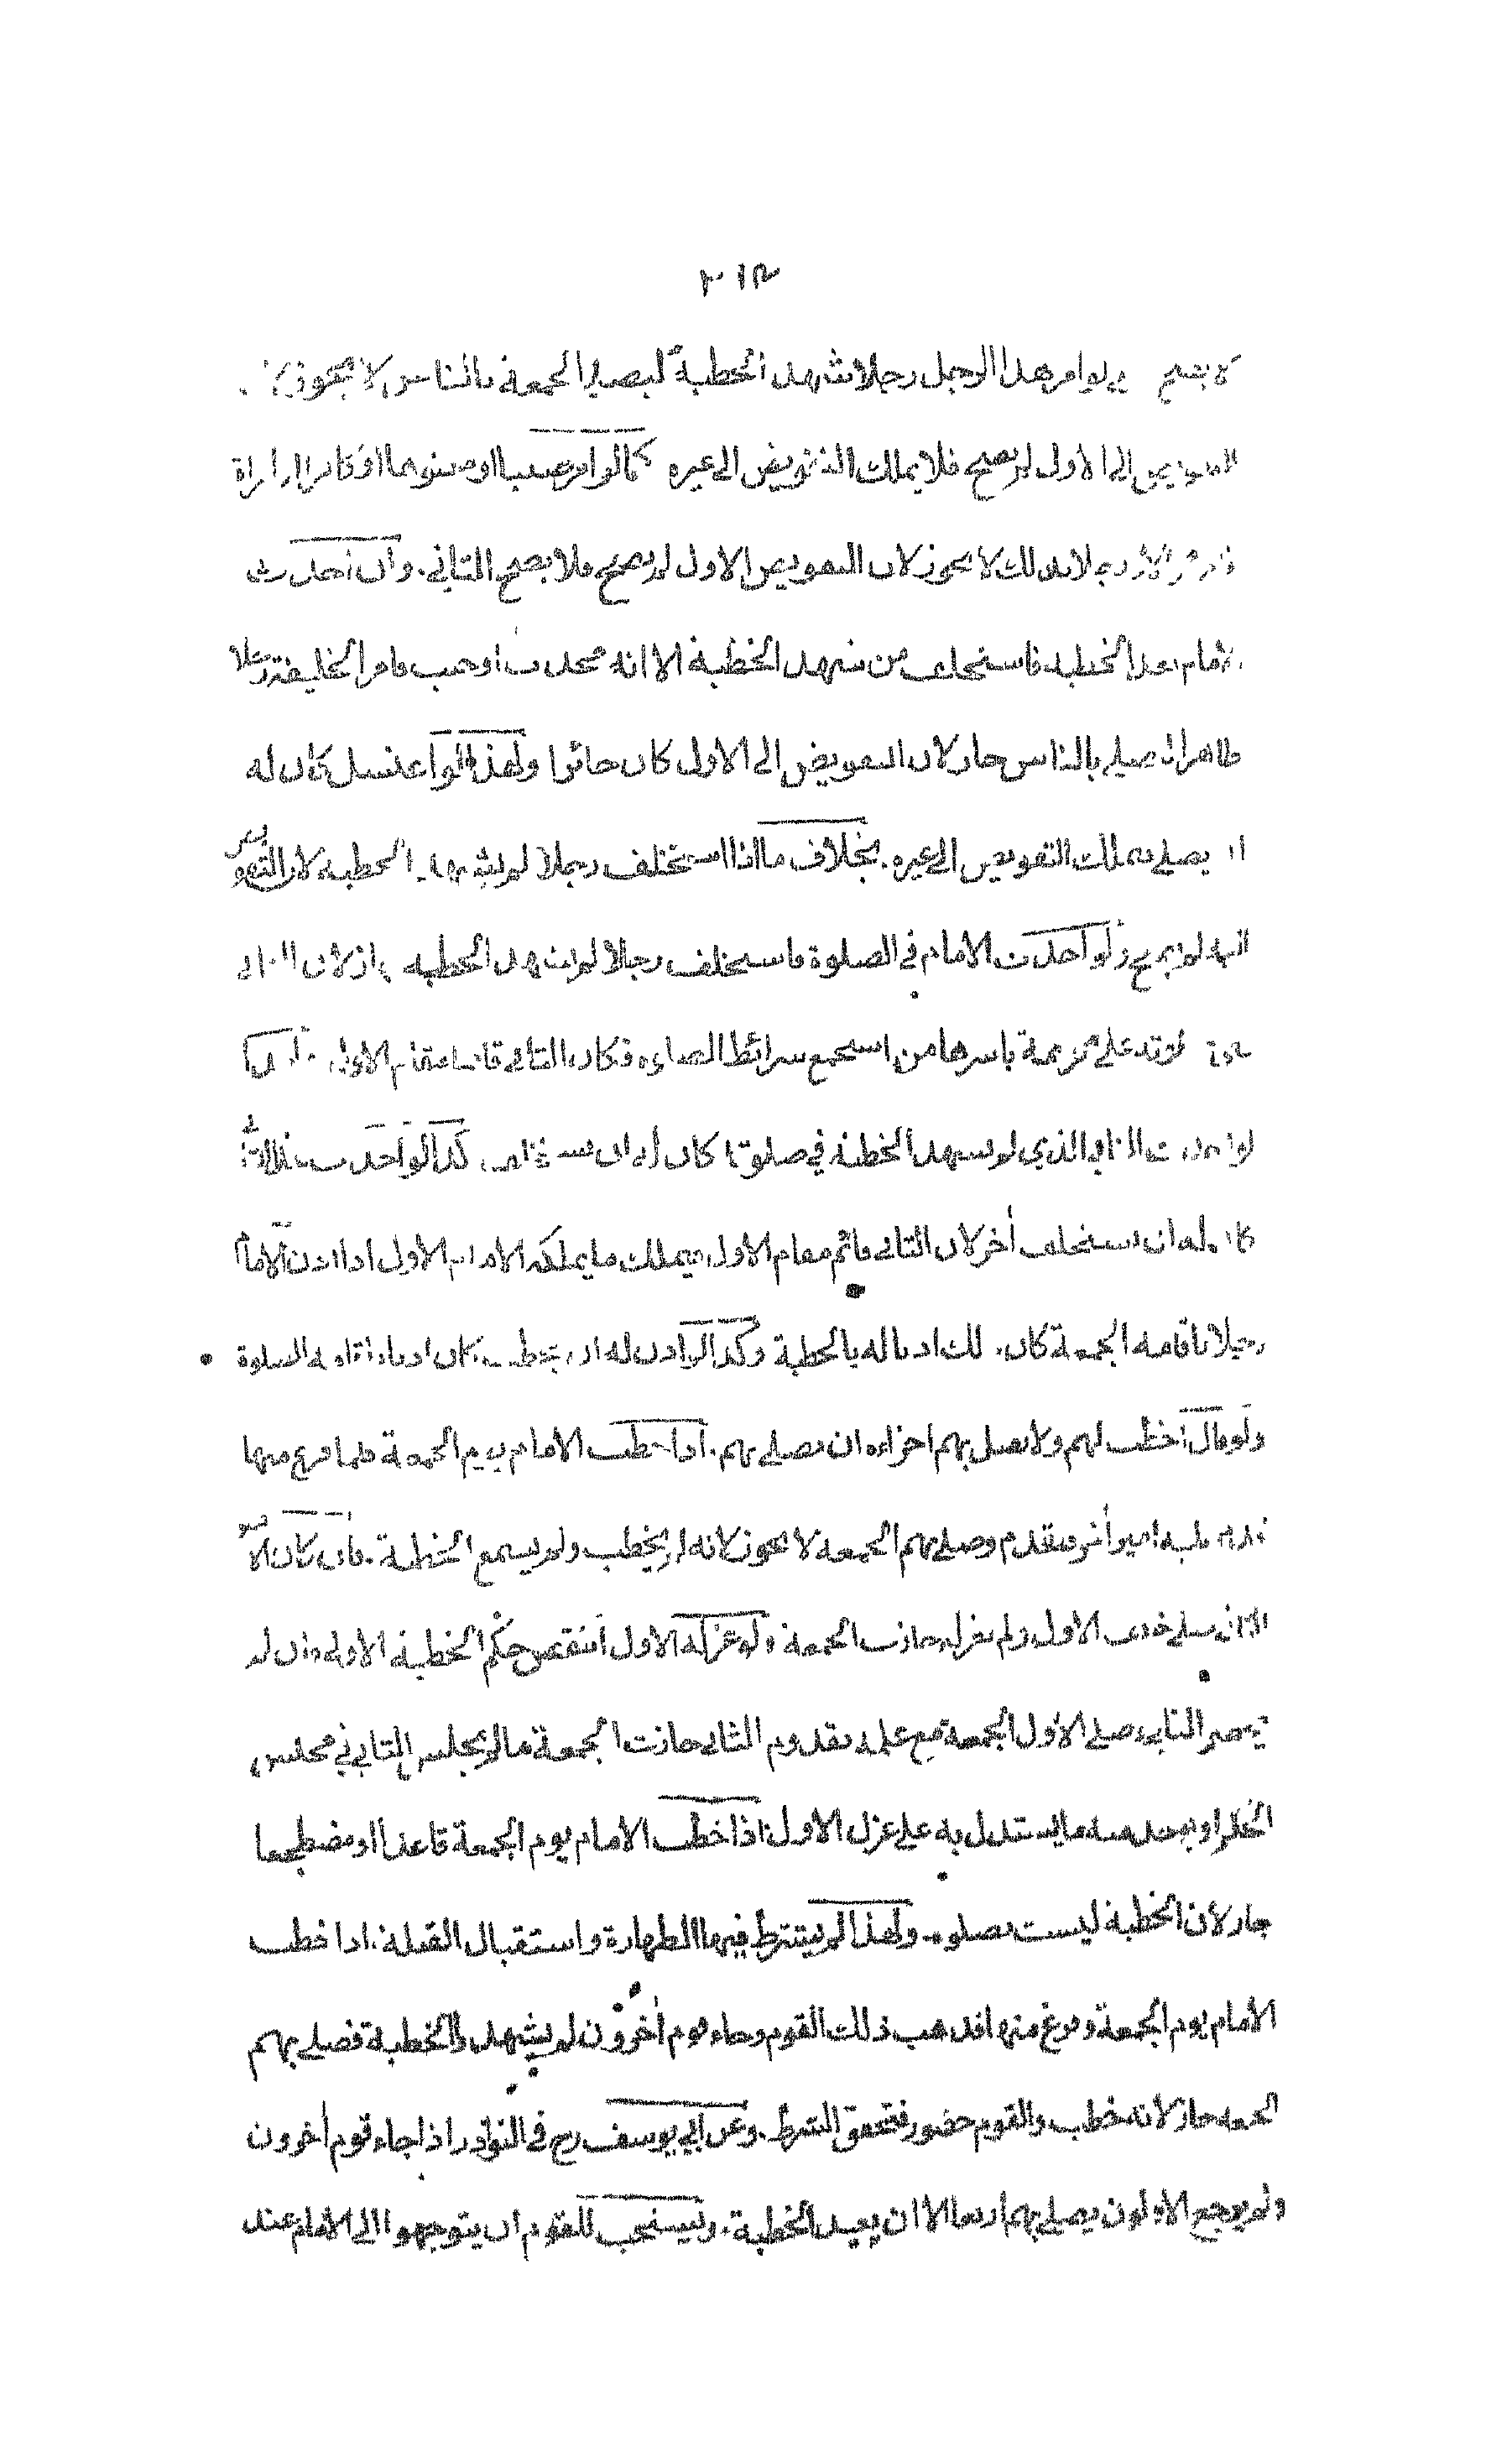 ٢١٣
لا يصح ولو امر هذا الرجل رجلا شهد الخطبة ليصلي الجمعة بالناس لا يجوز لان
التفويض الى الاول لم يصح فلا يملك التفويض الى غيره كما لو امر صبيا او معتوها او كافرا او امراة
رجلا بذلك لا يجوز لان التفويض الاول لم يصح فلا يصح الثاني. وان احدث
الامام بعد الخطبة فاستخلف من شهد الخطبة الا انه محدث او جنب فامر الخليفة رجلا
طاهرا ان يصلي بالناس جاز لان التفويض الى الاول كان جائزا ولهذا لو اغتسل كان له
ان يصلي فيملك التفويض الى غيره. بخلاف ما اذا استخلف رجلا لم يشهد الخطبة لان التفويض
اليه لم يصح ولو احدث الامام في الصلوة فاستخلف رجلا لم يشهد الخطبة جاز لان الثاني
على تحريمة باشرها من استجمع شرائط الصلوة فكان الثاني قائما مقام الاول وكذا
لو احدث الثاني الذي لم يشهد الخطبة في صلوته كان له ان يستخلف كذا لو احدث الثالث
كان له ان يستخلف اخر لان الثاني قائم مقام الاول فيملك ما يملكه الامام الاول اذا اذن الامام
رجلا باقامة الجمعة كان ذلك اذنا له بالخطبة وكذا لو اذن له ان يخطب كان اذنا باقامة الصلوة
ولو قال اخطب لهم ولا تصل بهم اجزاه ان يصلي بهم. اذا خطب الامام يوم الجمعة فلما فرغ منها
قدم عليه امير اخر فتقدم وصلى بهم الجمعة لا يجوز لانه لم يخطب ولم يسمع الخطبة. فان كان الامير
الثاني صلى خلف الاول ولم يعزله جازت الجمعة ولو عزله الاول انتقض حكم الخطبة الاولى وان لم
يحضر الثاني وصلى الاول الجمعة مع علمه بقدوم الثاني جازت الجمعة ما لم يجلس الثاني في مجلس
الحكم او يوجد منه ما يستدل به على عزل الاول اذا خطب الامام يوم الجمعة قاعدا او مضطجعا
جاز لان الخطبة ليست بصلوة. ولهذا لم يشترط فيها الطهارة واستقبال القبلة. اذا خطب
الامام يوم الجمعة وفرغ منها فذهب ذلك القوم وجاء قوم اخرون لم يشهدوا الخطبة فصلى بهم
الجمعة جاز لانه خطب والقوم حضور فتحقق الشرط. وعن ابي يوسف رح في النوادر اذا جاء قوم اخرون
ولم يرجع الاولون يصلي بهم اربعا الا ان يعيد الخطبة. ويستحب للقوم ان يتوجهوا الى الامام عند